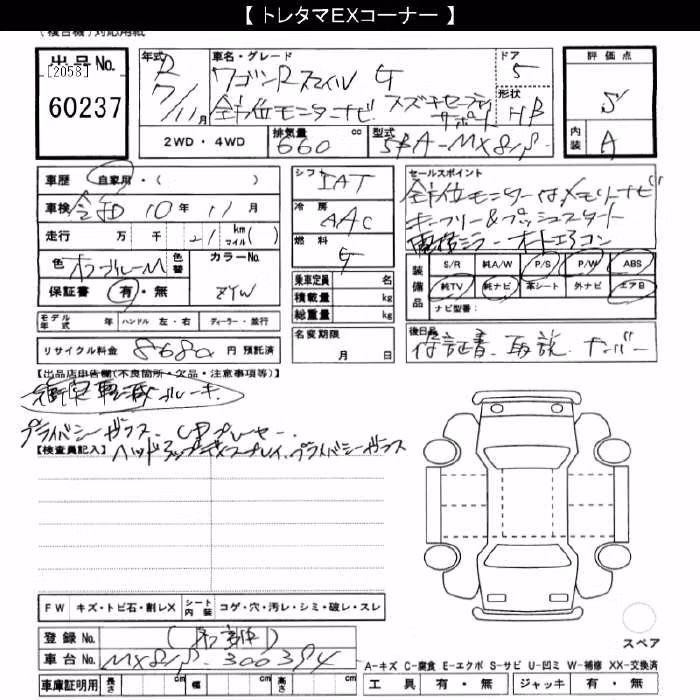 【 トレタマEXコーナー 】
対応用紙
出品 No.
[2058]
60237
年式 R 7/11月
車名・グレード
ワゴンRスマイル G
全方位モニターナビ. スズキセーフティサポート
ドア 5
形状 HB
2WD・4WD
排気量 660 cc
型式 5BA-MX81S
評価点 S
内装 A
車歴 自家用・( )
車検 令和 10年 11月
走行 万 千 21 km マイル ( )
色 M 色替
カラーNo. ZYW
保証書 有・無
モデル年式 年 ハンドル 左・右 ディーラー・並行
リサイクル料金 8680 円 預託済
シフト IAT
冷房 AAC
燃料 G
乗車定員 名
積載量 kg
総重量 kg
名変期限 月 日
セールスポイント
全方位モニター付メモリーナビ
キーフリー&プッシュスタート
電格ミラー オートエアコン
装備品 S/R 純A/W P/S P/W ABS
純TV 純ナビ 革シート 外ナビ エアB
ナビ型番:
後日品
保証書. 取説. ナンバー
【出品店申告欄(不良箇所・欠品・注意事項等)】
衝突軽減ブレーキ
プライバシーガラス. CDプレーヤー.
【検査員記入】 ヘッドアップディスプレイ. プライバシーガラス
FW キズ・トビ石・割レX シート内装 コゲ・穴・汚レ・シミ・破レ・スレ
登録 No. (新車)
車台 No. MX81S-300394
車庫証明用 長さ cm 幅 cm 高さ cm
スペア
A-キズ C-腐食 E-エクボ S-サビ U-凹ミ W-補修 XX-交換済
工具 有・無 ジャッキ 有・無